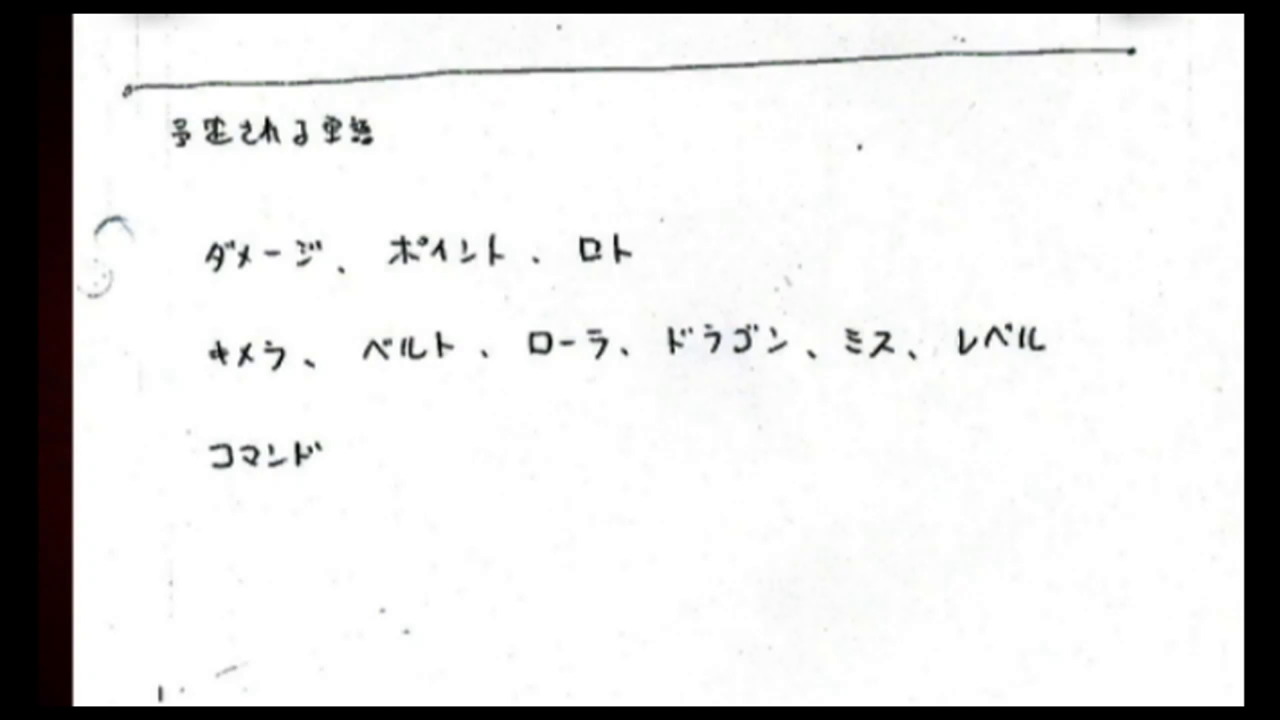 予定される単語
ダメージ、ポイント、ロト
キメラ、ベルト、ローラ、ドラゴン、ミス、レベル
コマンド